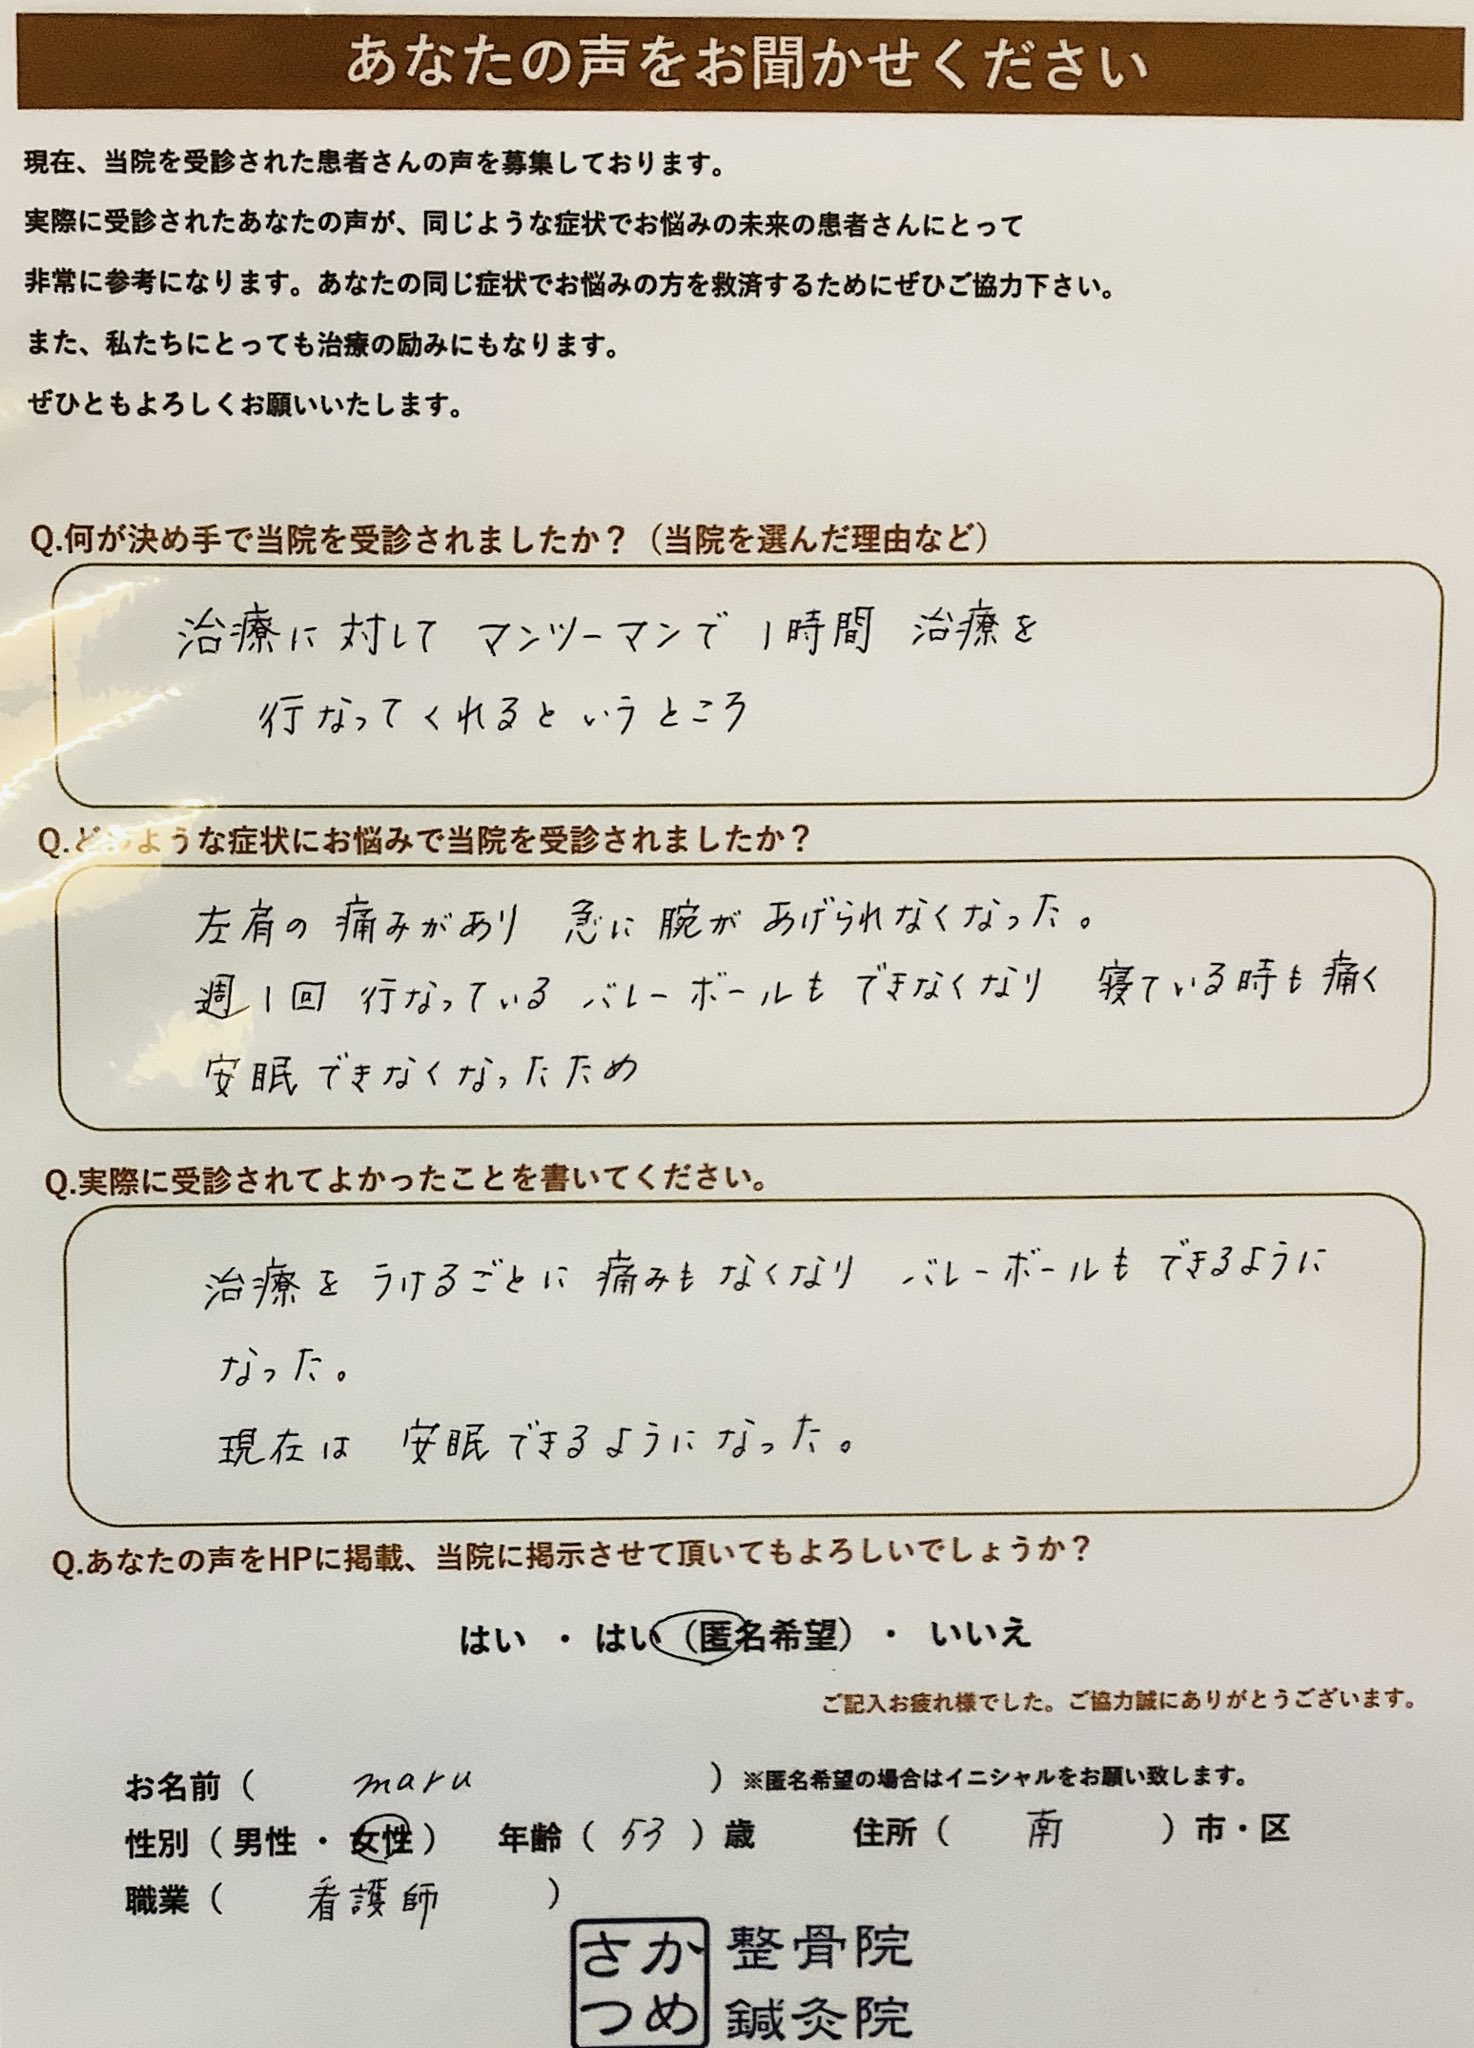 あなたの声をお聞かせください
現在、当院を受診された患者さんの声を募集しております。
実際に受診されたあなたの声が、同じような症状でお悩みの未来の患者さんにとって
非常に参考になります。あなたの同じ症状でお悩みの方を救済するためにぜひご協力下さい。
また、私たちにとっても治療の励みにもなります。
ぜひともよろしくお願いいたします。
Q.何が決め手で当院を受診されましたか？（当院を選んだ理由など）
治療に対して マンツーマンで 1時間 治療を
行なってくれるというところ
Q.どのような症状にお悩みで当院を受診されましたか？
左肩の 痛みがあり 急に 腕が あげられなくなった。
週1回 行なっている バレーボールも できなくなり 寝ている時も痛く
安眠できなくなったため
Q.実際に受診されてよかったことを書いてください。
治療を うけるごとに 痛みも なくなり バレーボールも できるように
なった。
現在は 安眠できるようになった。
Q.あなたの声をHPに掲載、当院に掲示させて頂いてもよろしいでしょうか？
はい ・ はい（匿名希望）・ いいえ
ご記入お疲れ様でした。ご協力誠にありがとうございます。
お名前（ maru ）※匿名希望の場合はイニシャルをお願い致します。
性別（男性・女性） 年齢（53）歳 住所（ 南 ）市・区
職業（ 看護師 ）
さかつめ 整骨院
鍼灸院